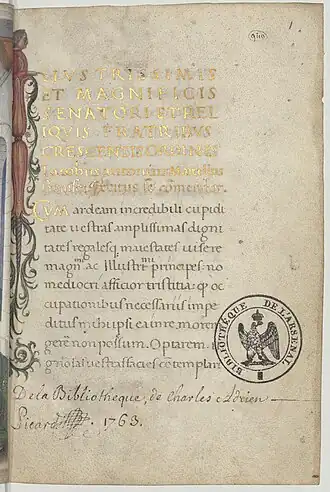 940
1
LLVSTRISSIMIS
ET MAGNIFICIS
SENATORI ET REL
IQVIS FRATRIBVS
CRESCENSE
se cōmendat.
CVM ardeam incredibili cupidi
tate vestras amplissimas digni
tates regalesq maiestates visere
magnci ac Illustrmi principes no
mediocri afficior tristitia: q oc
cupationibus necessariis impe
ditus mihi ipsi ea in re, morem
gerere non possum. Optarem
vestras facies cōtemplari
BIBLIOTHÈQUE DE L'ARSENAL
De la Bibliotheque, de Charles Adrien
Picard. 1763.